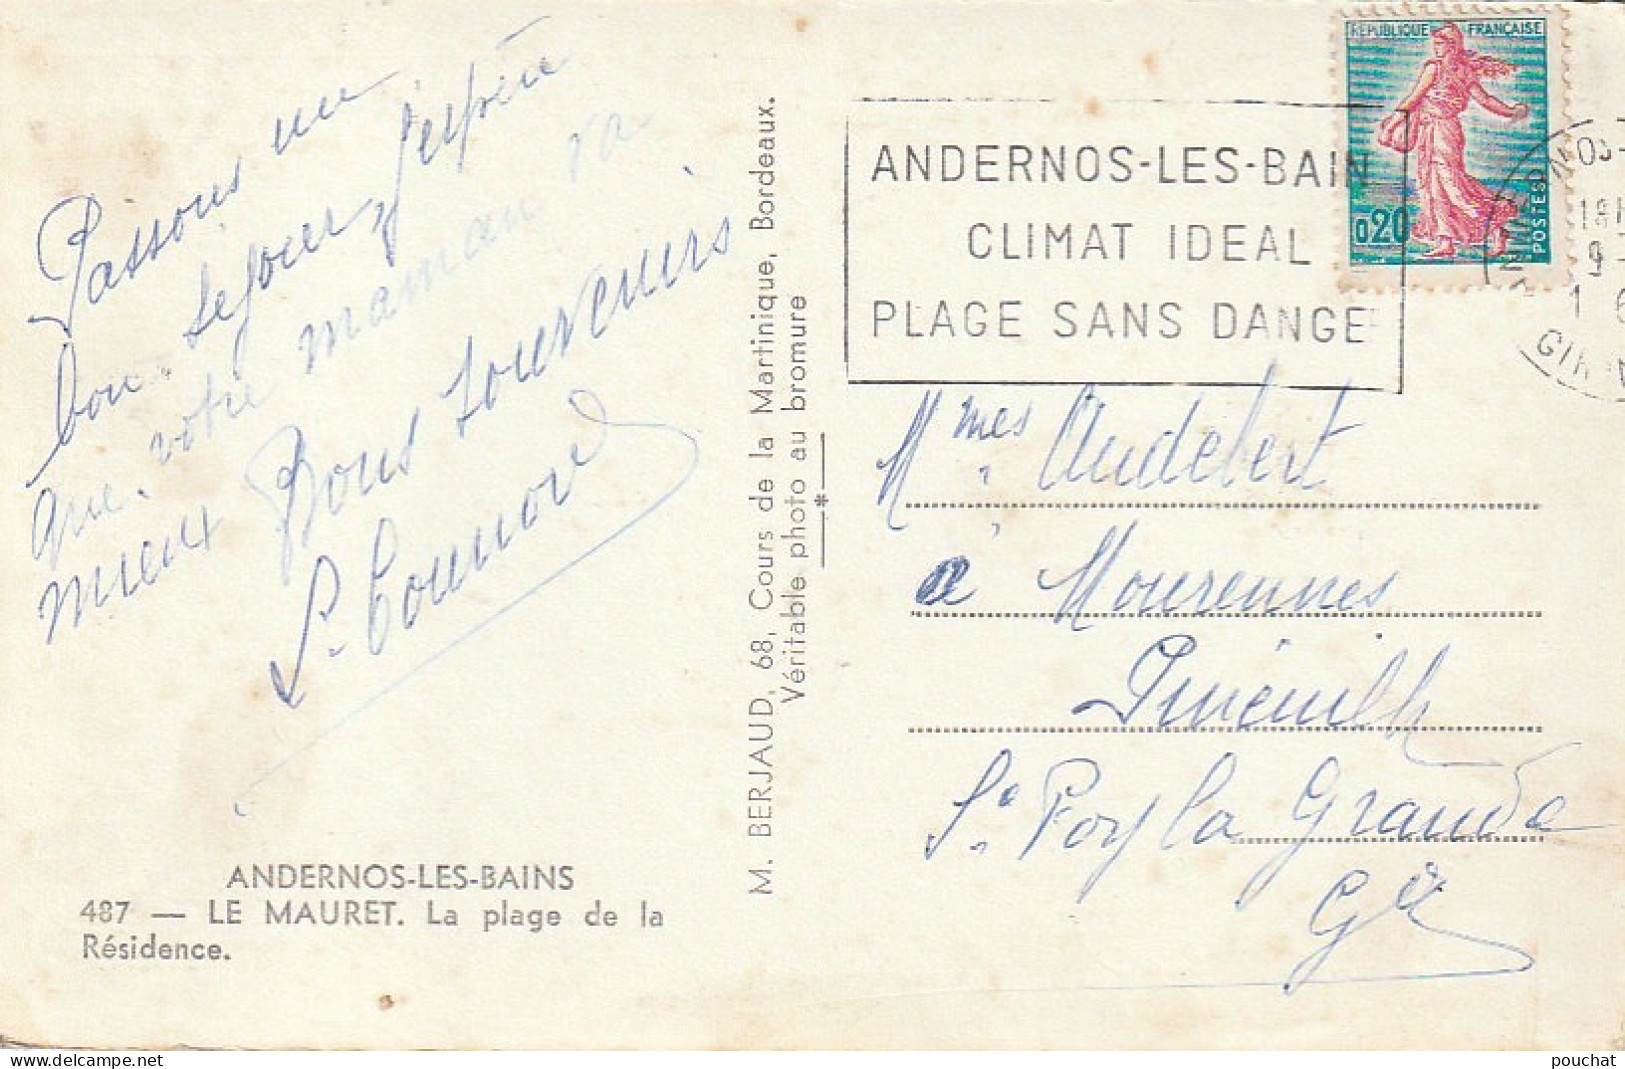 Passons un
bon séjour, j'espère
que votre maman va
mieux Bons souvenirs
ANDERNOS-LES-BAINS
487 — LE MAURET. La plage de la
Résidence.
M. BERJAUD, 68, Cours de la Martinique, Bordeaux.
Véritable photo au bromure
RÉPUBLIQUE FRANÇAISE
0,20
POSTES
ANDERNOS-LES-BAIN
CLIMAT IDEAL
PLAGE SANS DANGE
Mmes Audebert
à Mourennes
Pineuilh
Ste Foy la Grande
Gde
pouchat